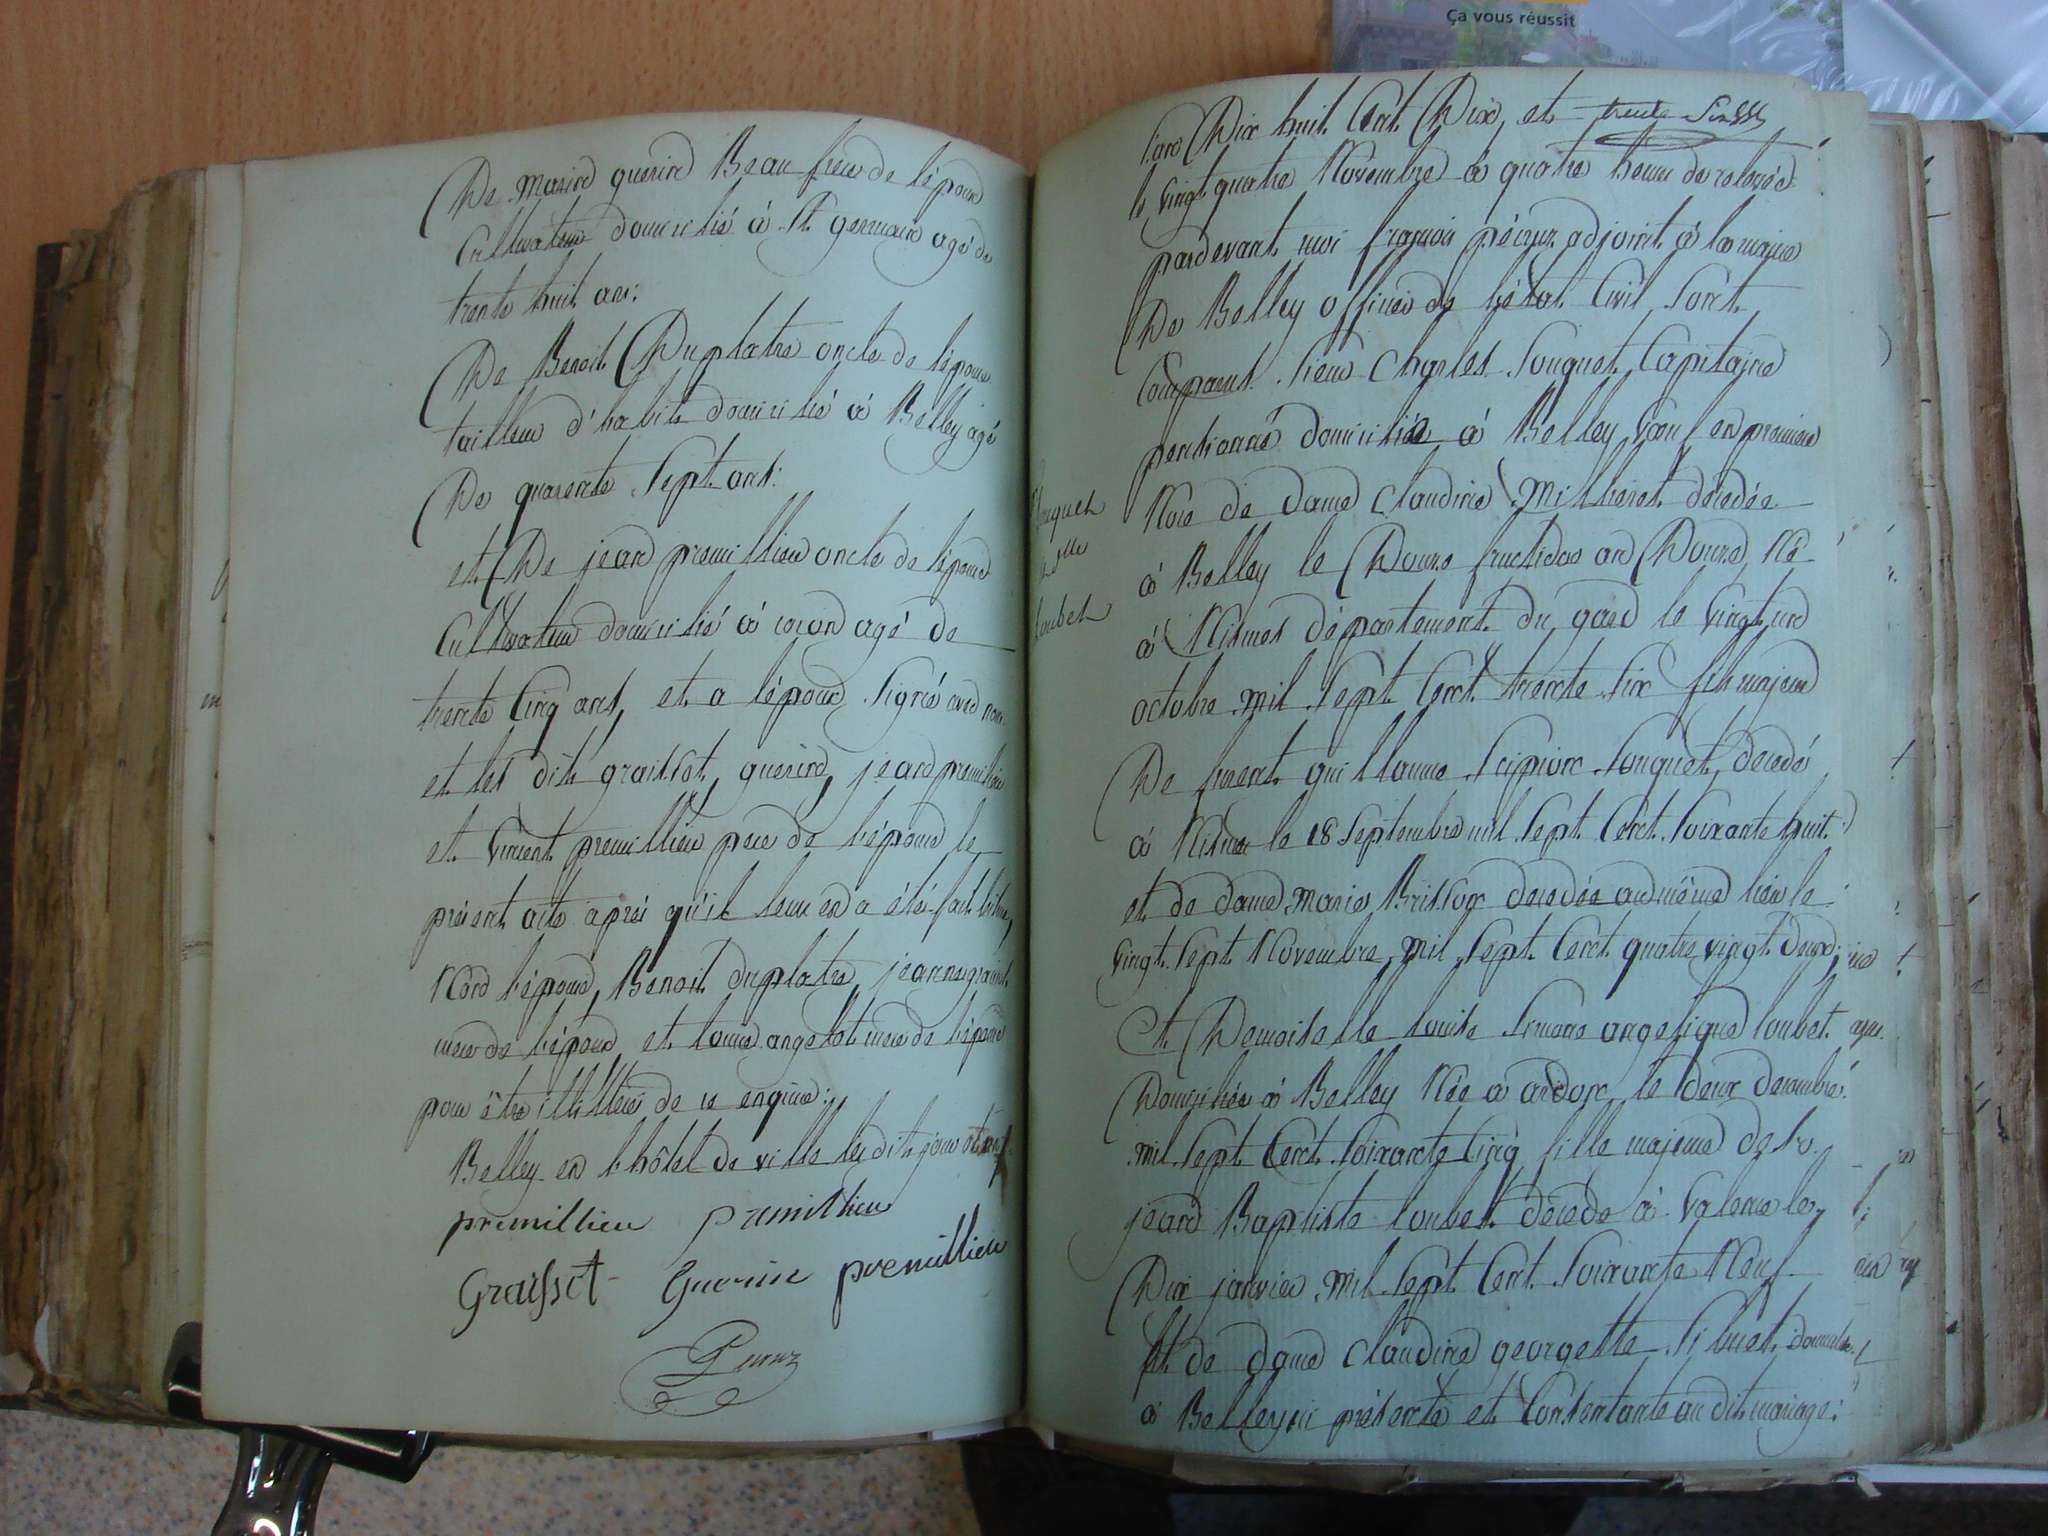 Ça vous réussit
De marin guerin Beau frere de l'epoux
Cultivateur domicilié à St germain agé de
trente huit ans:
De Benoit Duplatre oncle de l'epoux
tailleur d'habits domicilié à Belley agé
De quarente Sept ans:
et De jean premillieu oncle de l'epouse
Cultivateur domicilié à coron agé de
trente Cinq ans, et a l'époux Signé avec nous
et les dits graisset, guerin, jean premillieu
et Vincent premillieu pere de l'épouse le
présent acte après qu'il leur en a été fait lecture,
Non l'épouse, Benoit duplatre, jeanne graisset
mere de l'époux, et louise angelot mere de l'epouse
pour être illitterés de ce enquis:
Belley en l'hôtel de ville lesdits jour et an:
premillieu premillieu
Graisset Guerin premillieu
Peruz
l'an Dix huit Cent Dix, et
le vingt quatre Novembre à quatre heures de relevée
pardevant moi françois péruz adjoint à la mairie
De Belley officier de l'état Civil Sont
Comparus Sieur Charles Souquet Capitaine
pensionné domicilié à Belley Veuf en premiere
Noce de dame Claudine Millieret décédée
à Belley le Douze fructidor an Douze, Né
à Nismes département du gard le Vingt un
octobre mil Sept Cent trente Six fils majeur
De furent guillaume Scipion Souquet, décédé
à Nismes le 18 Septembre mil Sept Cent Soixante huit
et de dame marie Brisson décédée au même lieu le
Vingt Sept Novembre mil Sept Cent quatre vingt Deux;
Souquet
&
Loubet
Et Demoiselle louise Simone angelique loubet
Domiciliée à Belley Née à ardon le deux décembre
mil Sept Cent Soixante Cinq fille majeure de Sr
jean Baptiste loubet décédé à Valence le
Dix janvier mil Sept Cent Soixante Neuf
Et de dame Claudine georgette Sibuet domiciliée
à Belley ici présente et Consentante au dit mariage: